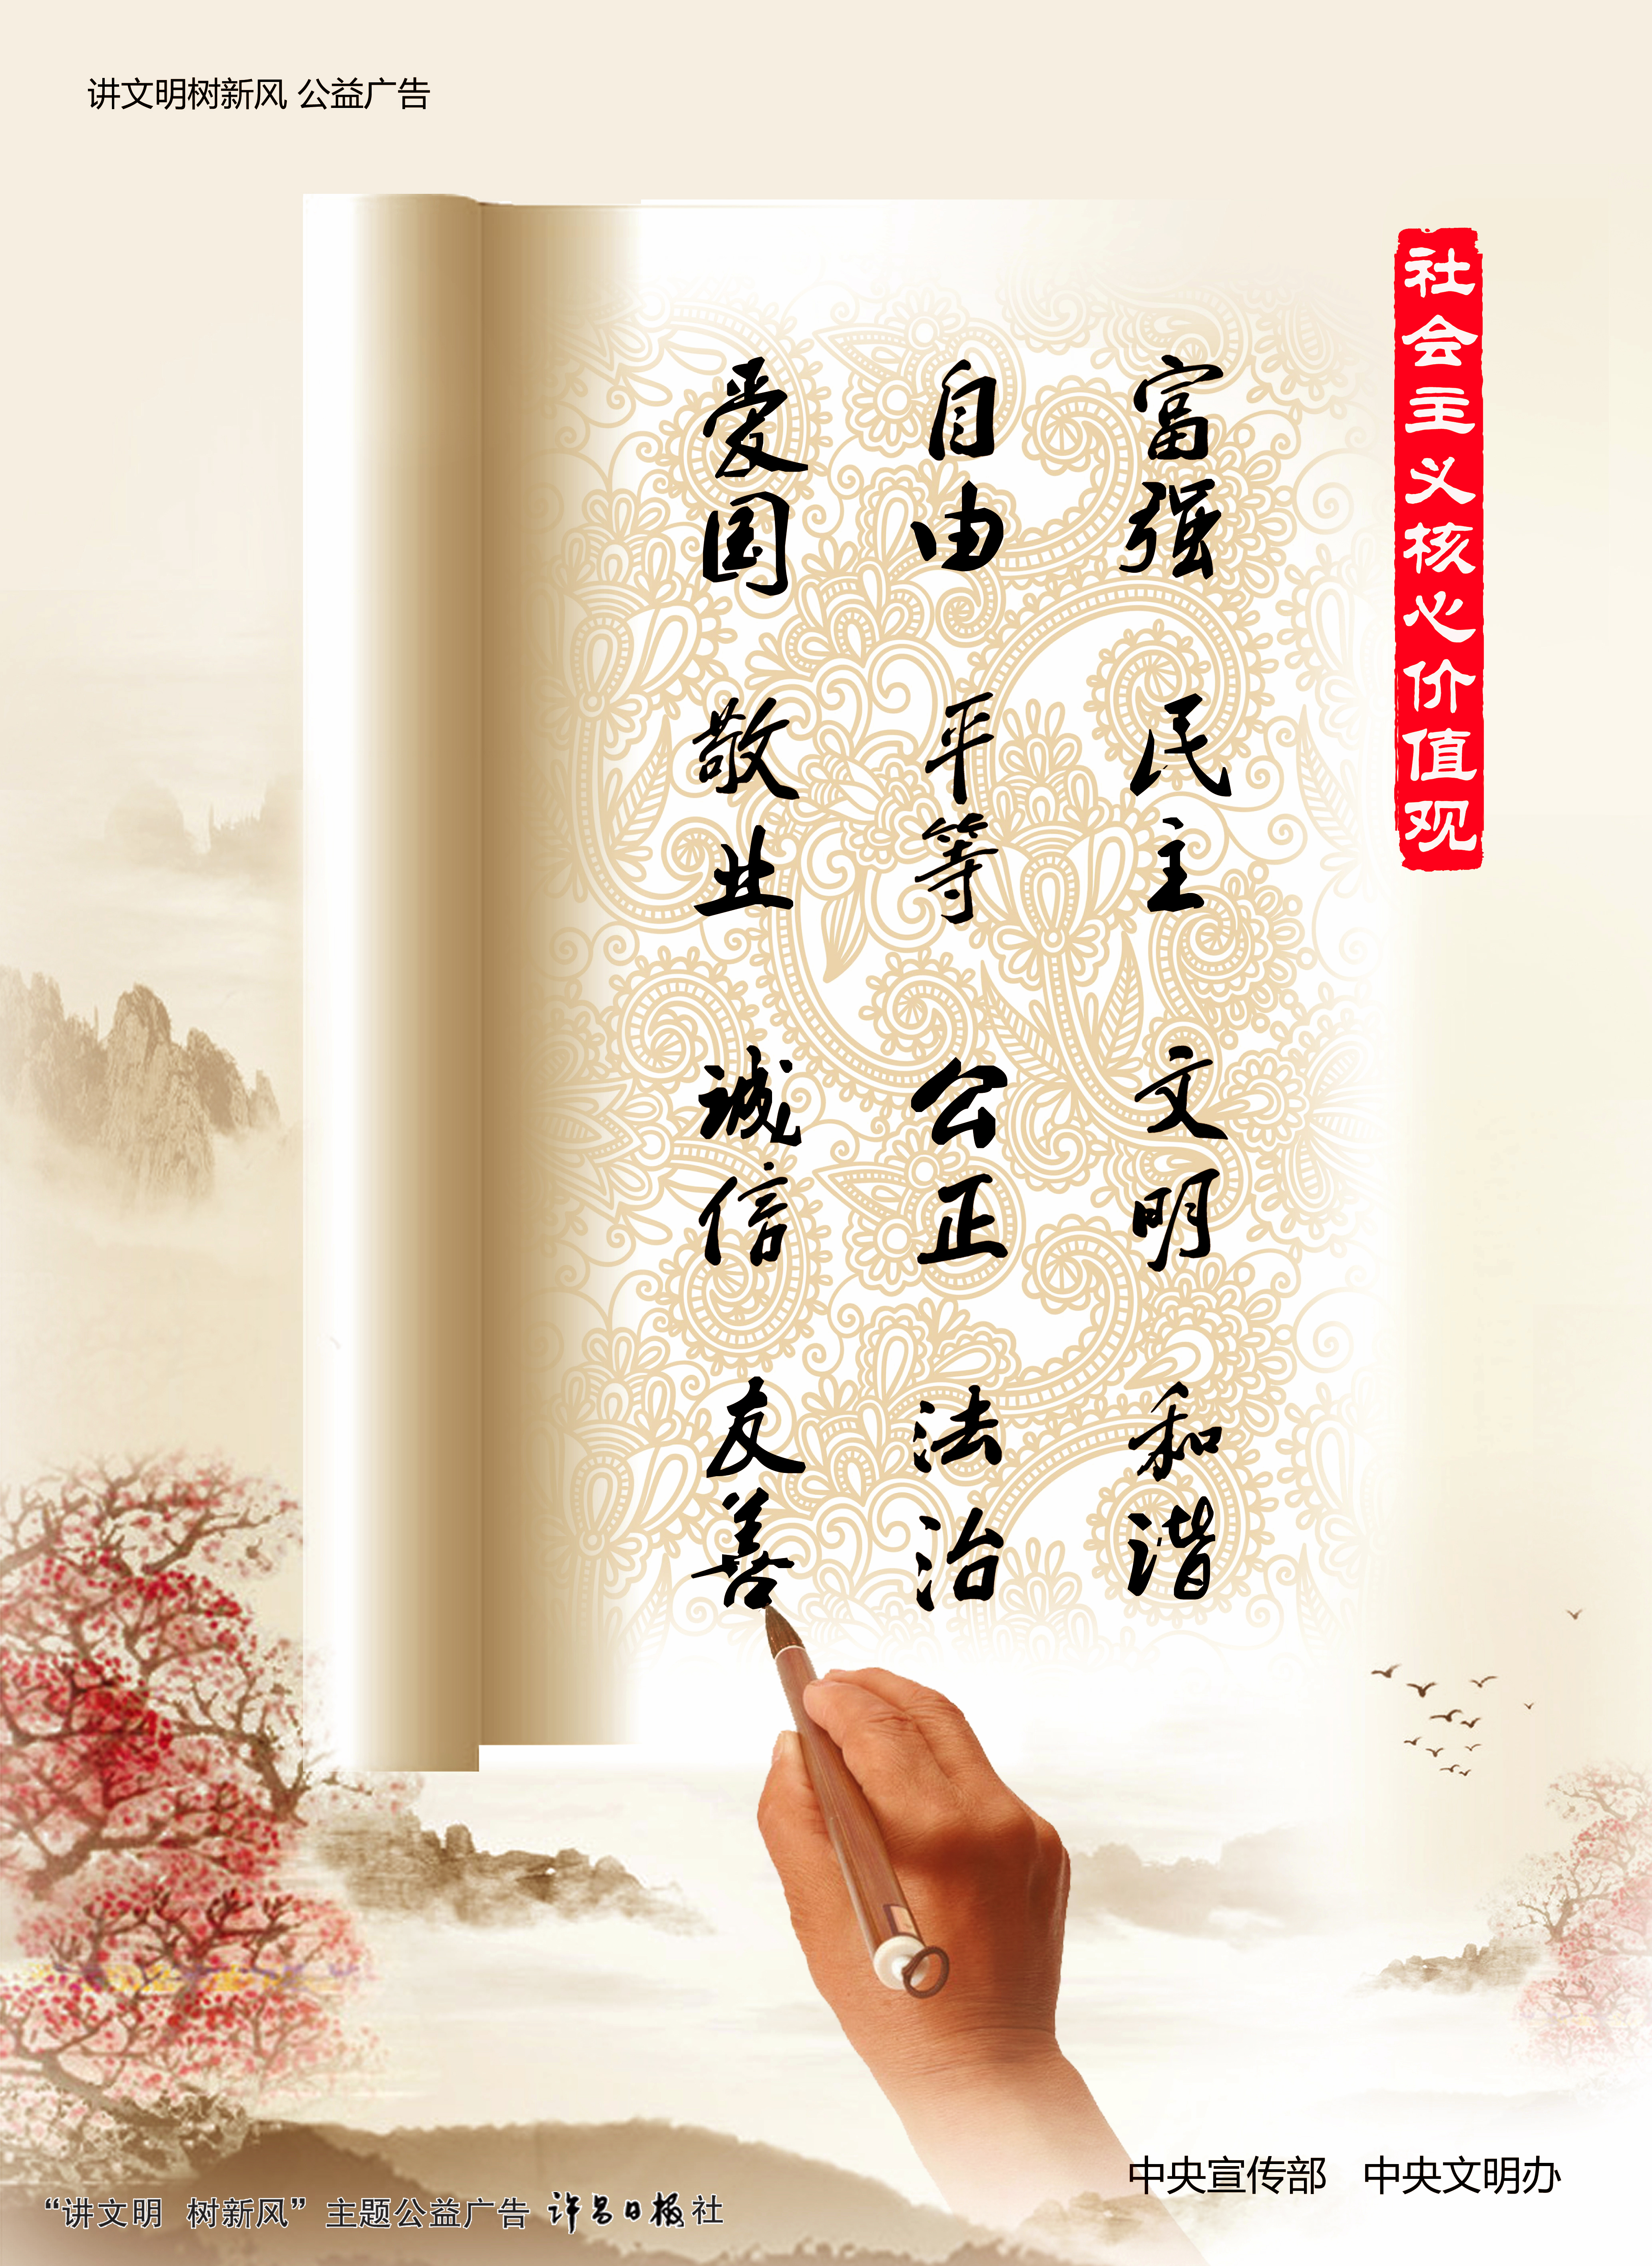 讲文明树新风 公益广告
社会主义核心价值观
富强 民主 文明 和谐
自由 平等 公正 法治
爱国 敬业 诚信 友善
中央宣传部 中央文明办
“讲文明 树新风”主题公益广告 许昌日报社